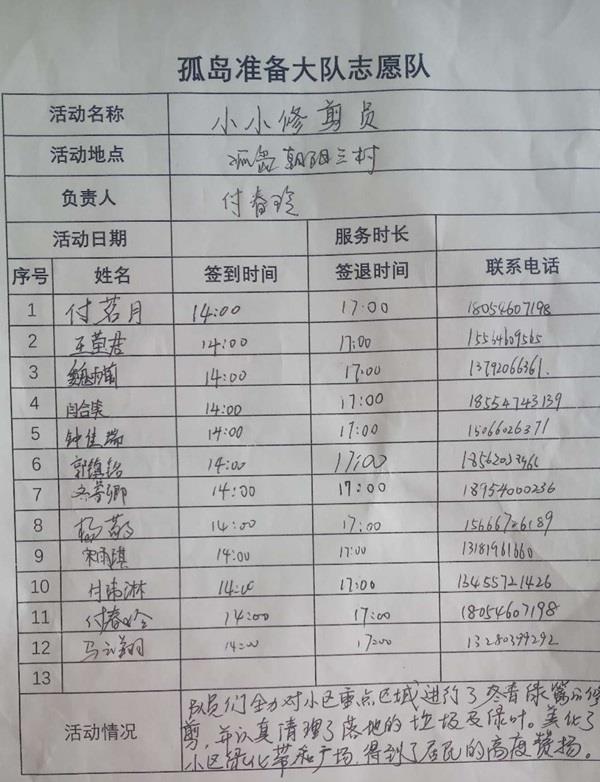 孤岛准备大队志愿队
活动名称 小小修剪员
活动地点 孤岛朝阳三村
负责人 付春玲
活动日期 服务时长
序号 姓名 签到时间 签退时间 联系电话
1 付茗月 14:00 17:00 18054607198
2 王萤君 14:00 17:00 15564609565
3 14:00 17:00 13792066361.
4 闫合奕 14:00 17:00 18554743139
5 钟佳瑞 14:00 17:00 15066026371
6 郭镇铭 14:00 17:00
7 14:00 17:00 18954000236
8 杨 14:00 17:00 15666726189
9 宋雨琪 14:00 17:00 13181961660
10 付 淋 14:00 17:00 13455721426
11 付春玲 14:00 17:00 18054607198
12 马 翔 14:00 17:00 13280399292
13
活动情况 队员们全力对小区重点区域进行了冬青绿篱的修
剪,并认真清理了落地的垃圾及绿叶。美化了
小区绿化带和广场,得到了居民的高度赞扬。